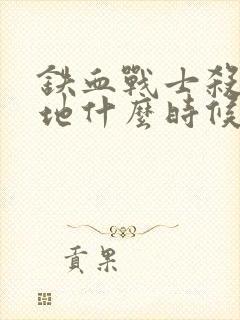 鉄血戰士殺
地什麼時候
貢果